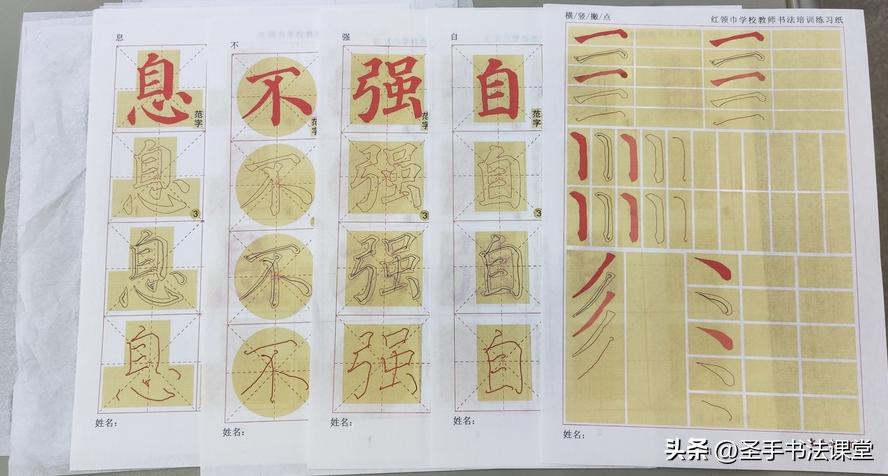 息
息
范字
息
③
息
息
姓名：
不
不
范字
不
不
不
姓名：
强
强
范字
强
③
强
强
姓名：
自
自
范字
自
③
自
自
姓名：
横/竖/撇/点
红领巾学校教师书法培训练习纸
姓名：
头条 @圣手书法课堂